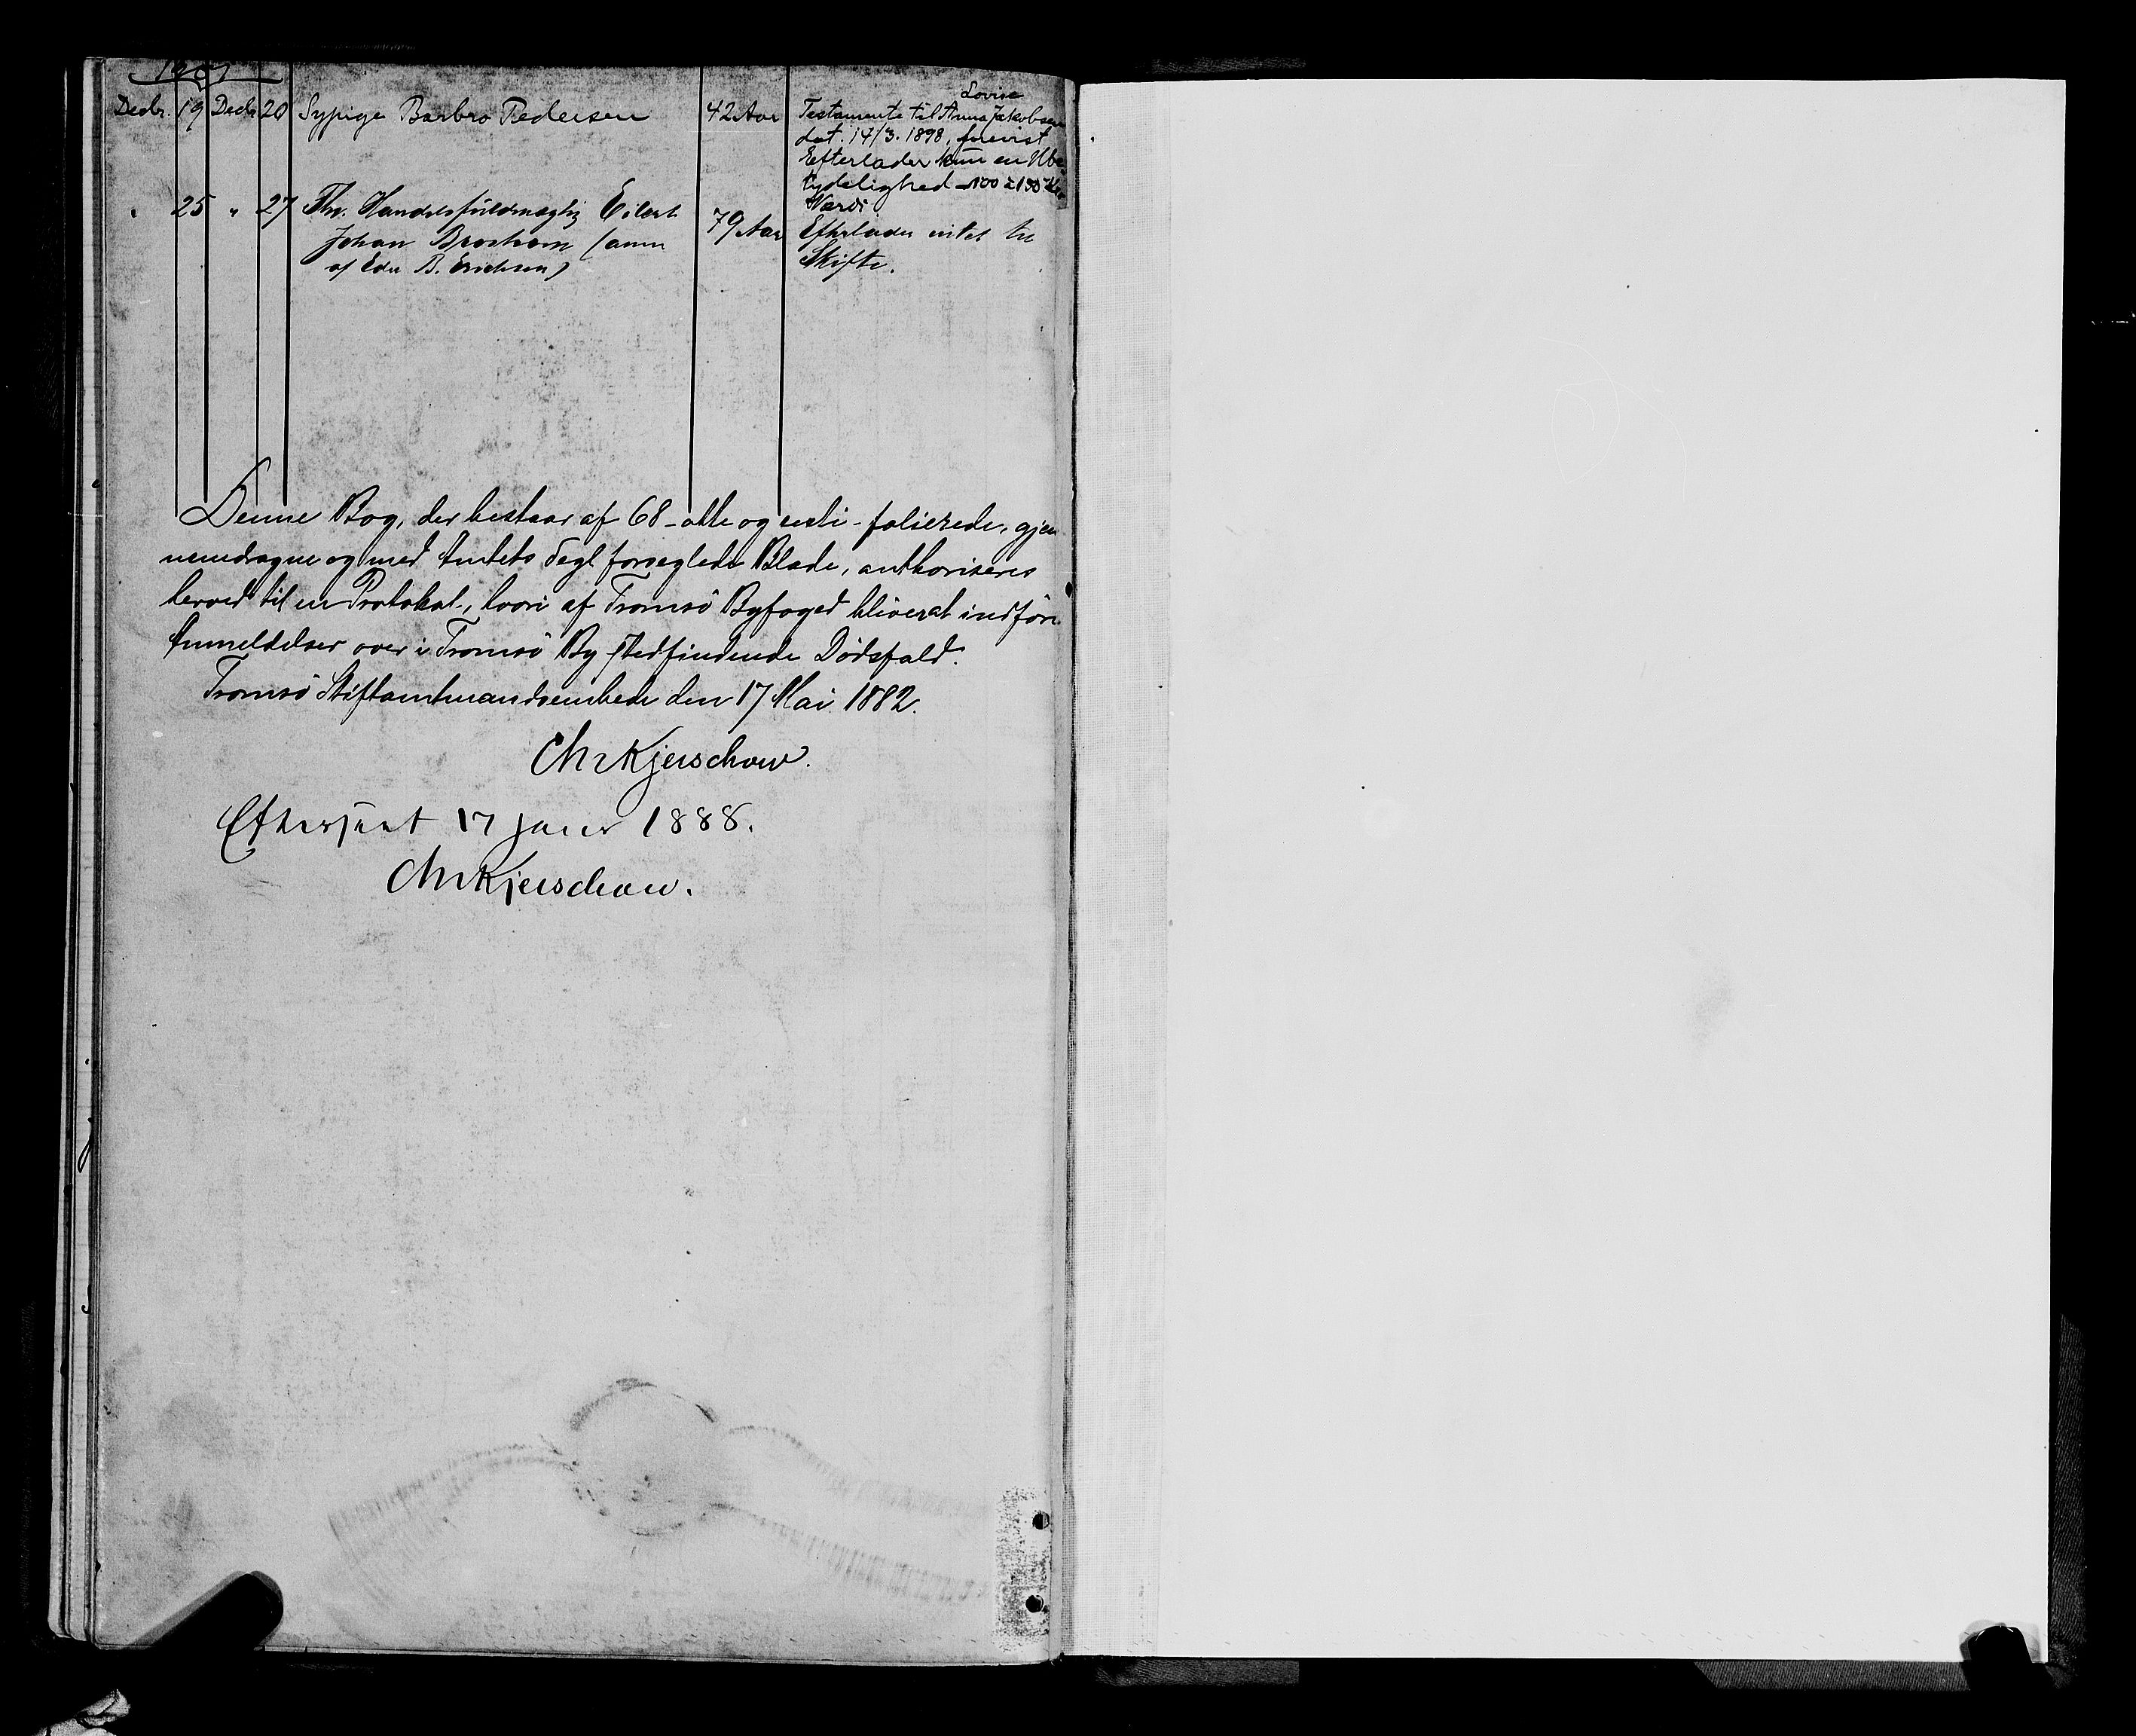 Decbr. 19 Decb. 20 Sypige Barbro Pedersen 42 Aar Testamente til Anna Lovise Jakobsen
dat. 14/3. 1898, forevist
Efterlader kun en Ube-
tydelighed - 100 à 150 Kr
Værdi
" 25 " 27 Fhv. Handelsfuldmægtig Eilert 79 Aar Efterlader intet til
Johan Brostrøm (anm Skifte.
af Edv B. Erichsen)
Denne Bog, der bestaar af 68 - otte og sexti - folierede, gjen-
nemdragne og med Amtets Segl forseglede Blade, authoriseres
herved til en Protokol, hvori af Tromsö Byfoged bliver at indföre
Anmeldelser over i Tromsö By stedfindende Dödsfald.
Tromsö Stiftamtmandsembede den 17 Mai 1882.
Chr Kjerschow.
Efterseet 17 1888.
Chr Kjerschow.